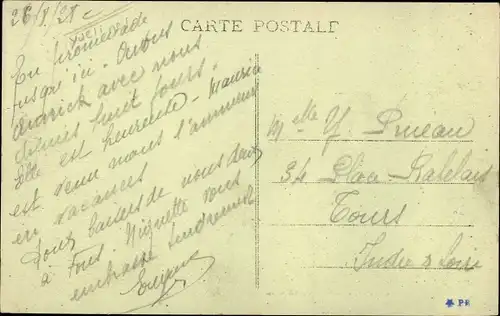 26/8/28
CARTE POSTALE
En promenade
jusqu'ici. Avons
avec nous
depuis huit jours.
Elle est heureuse. Maurice
est venu nous l'amener
en vacances
Doux baisers de nous deux
à Tous. Miquette vous
embrasse tendrement
Eugène
Mlle Y. Pineau
34 Place Rabelais
Tours
Indre & Loire
PH